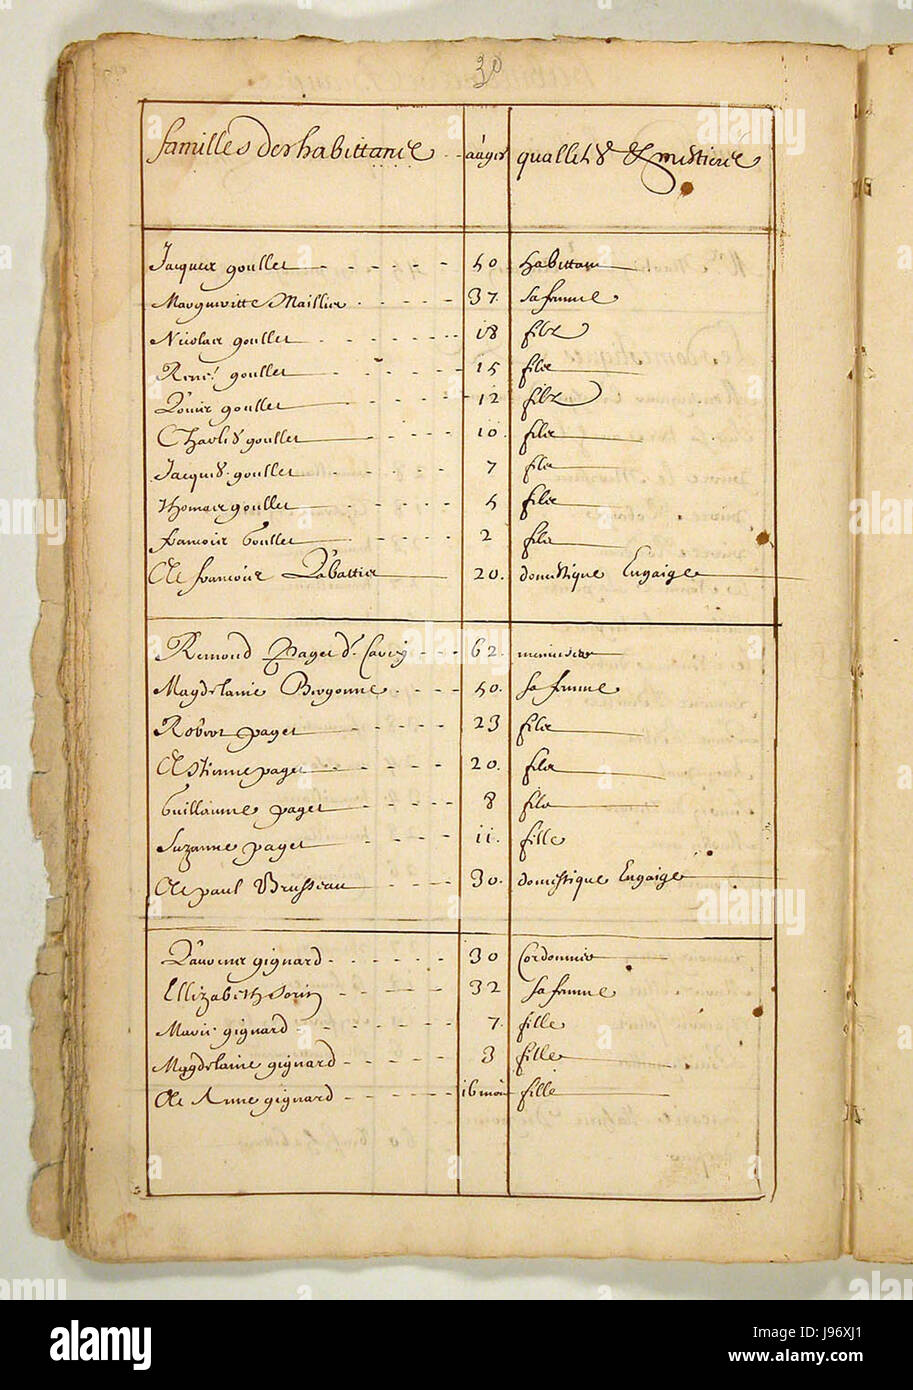 30
familles des habittans aâges quallités & mestiers
Jacques goullet 50 habittans
Margueritte Maillier 37 sa femme
Nicolas goullet 18 fils
René goullet 15 fils
Louis goullet 12 fils
Charles goullet 10 fils
Jacques goullet 7 fils
thomas goullet 5 fils
francois Goullet 2 fils
Et francois 20. domestique Engaigé
Remond paget dt Carcy 62 menuisier
Magdelaine Bergonne 50 sa femme
Robert paget 23 fils
Estienne paget 20 fils
Guillaume paget 8 fils
Suzanne paget 11 fille
Et paul Brusseau 30. domestique Engaigé
Laurens gignard 30 Cordonnier
Ellizabeth sorin 32 sa femme
Marie gignard 7. fille
Magdelaine gignard 3 fille
Et Anne gignard 16 mois fille
alamy
Image ID: J96XJ1
www.alamy.com